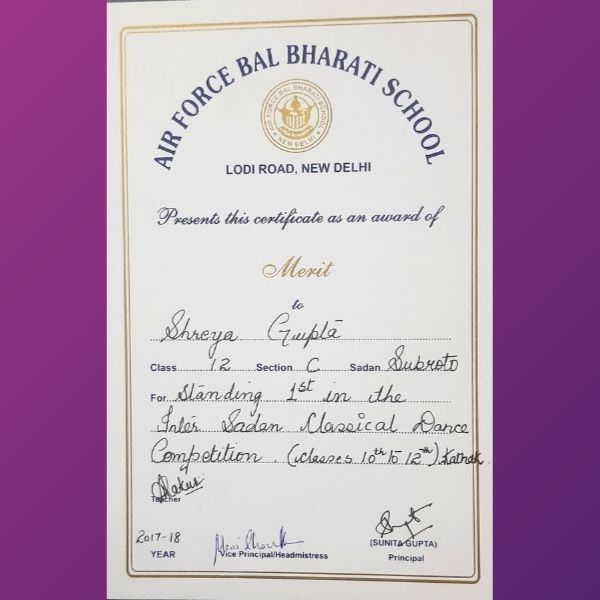 AIR FORCE BAL BHARATI SCHOOL
AIR FORCE BAL BHARATI SCHOOL
NEW DELHI
LODI ROAD, NEW DELHI
Presents this certificate as an award of
Merit
to
Shreya Gupta
Class 12 Section C Sadan Subroto
For Standing 1st in the
Inter Sadan Classical Dance
Competition. (classes 10th to 12th) Kathak
Teacher
2017-18
YEAR
Vice Principal/Headmistress
(SUNITA GUPTA)
Principal